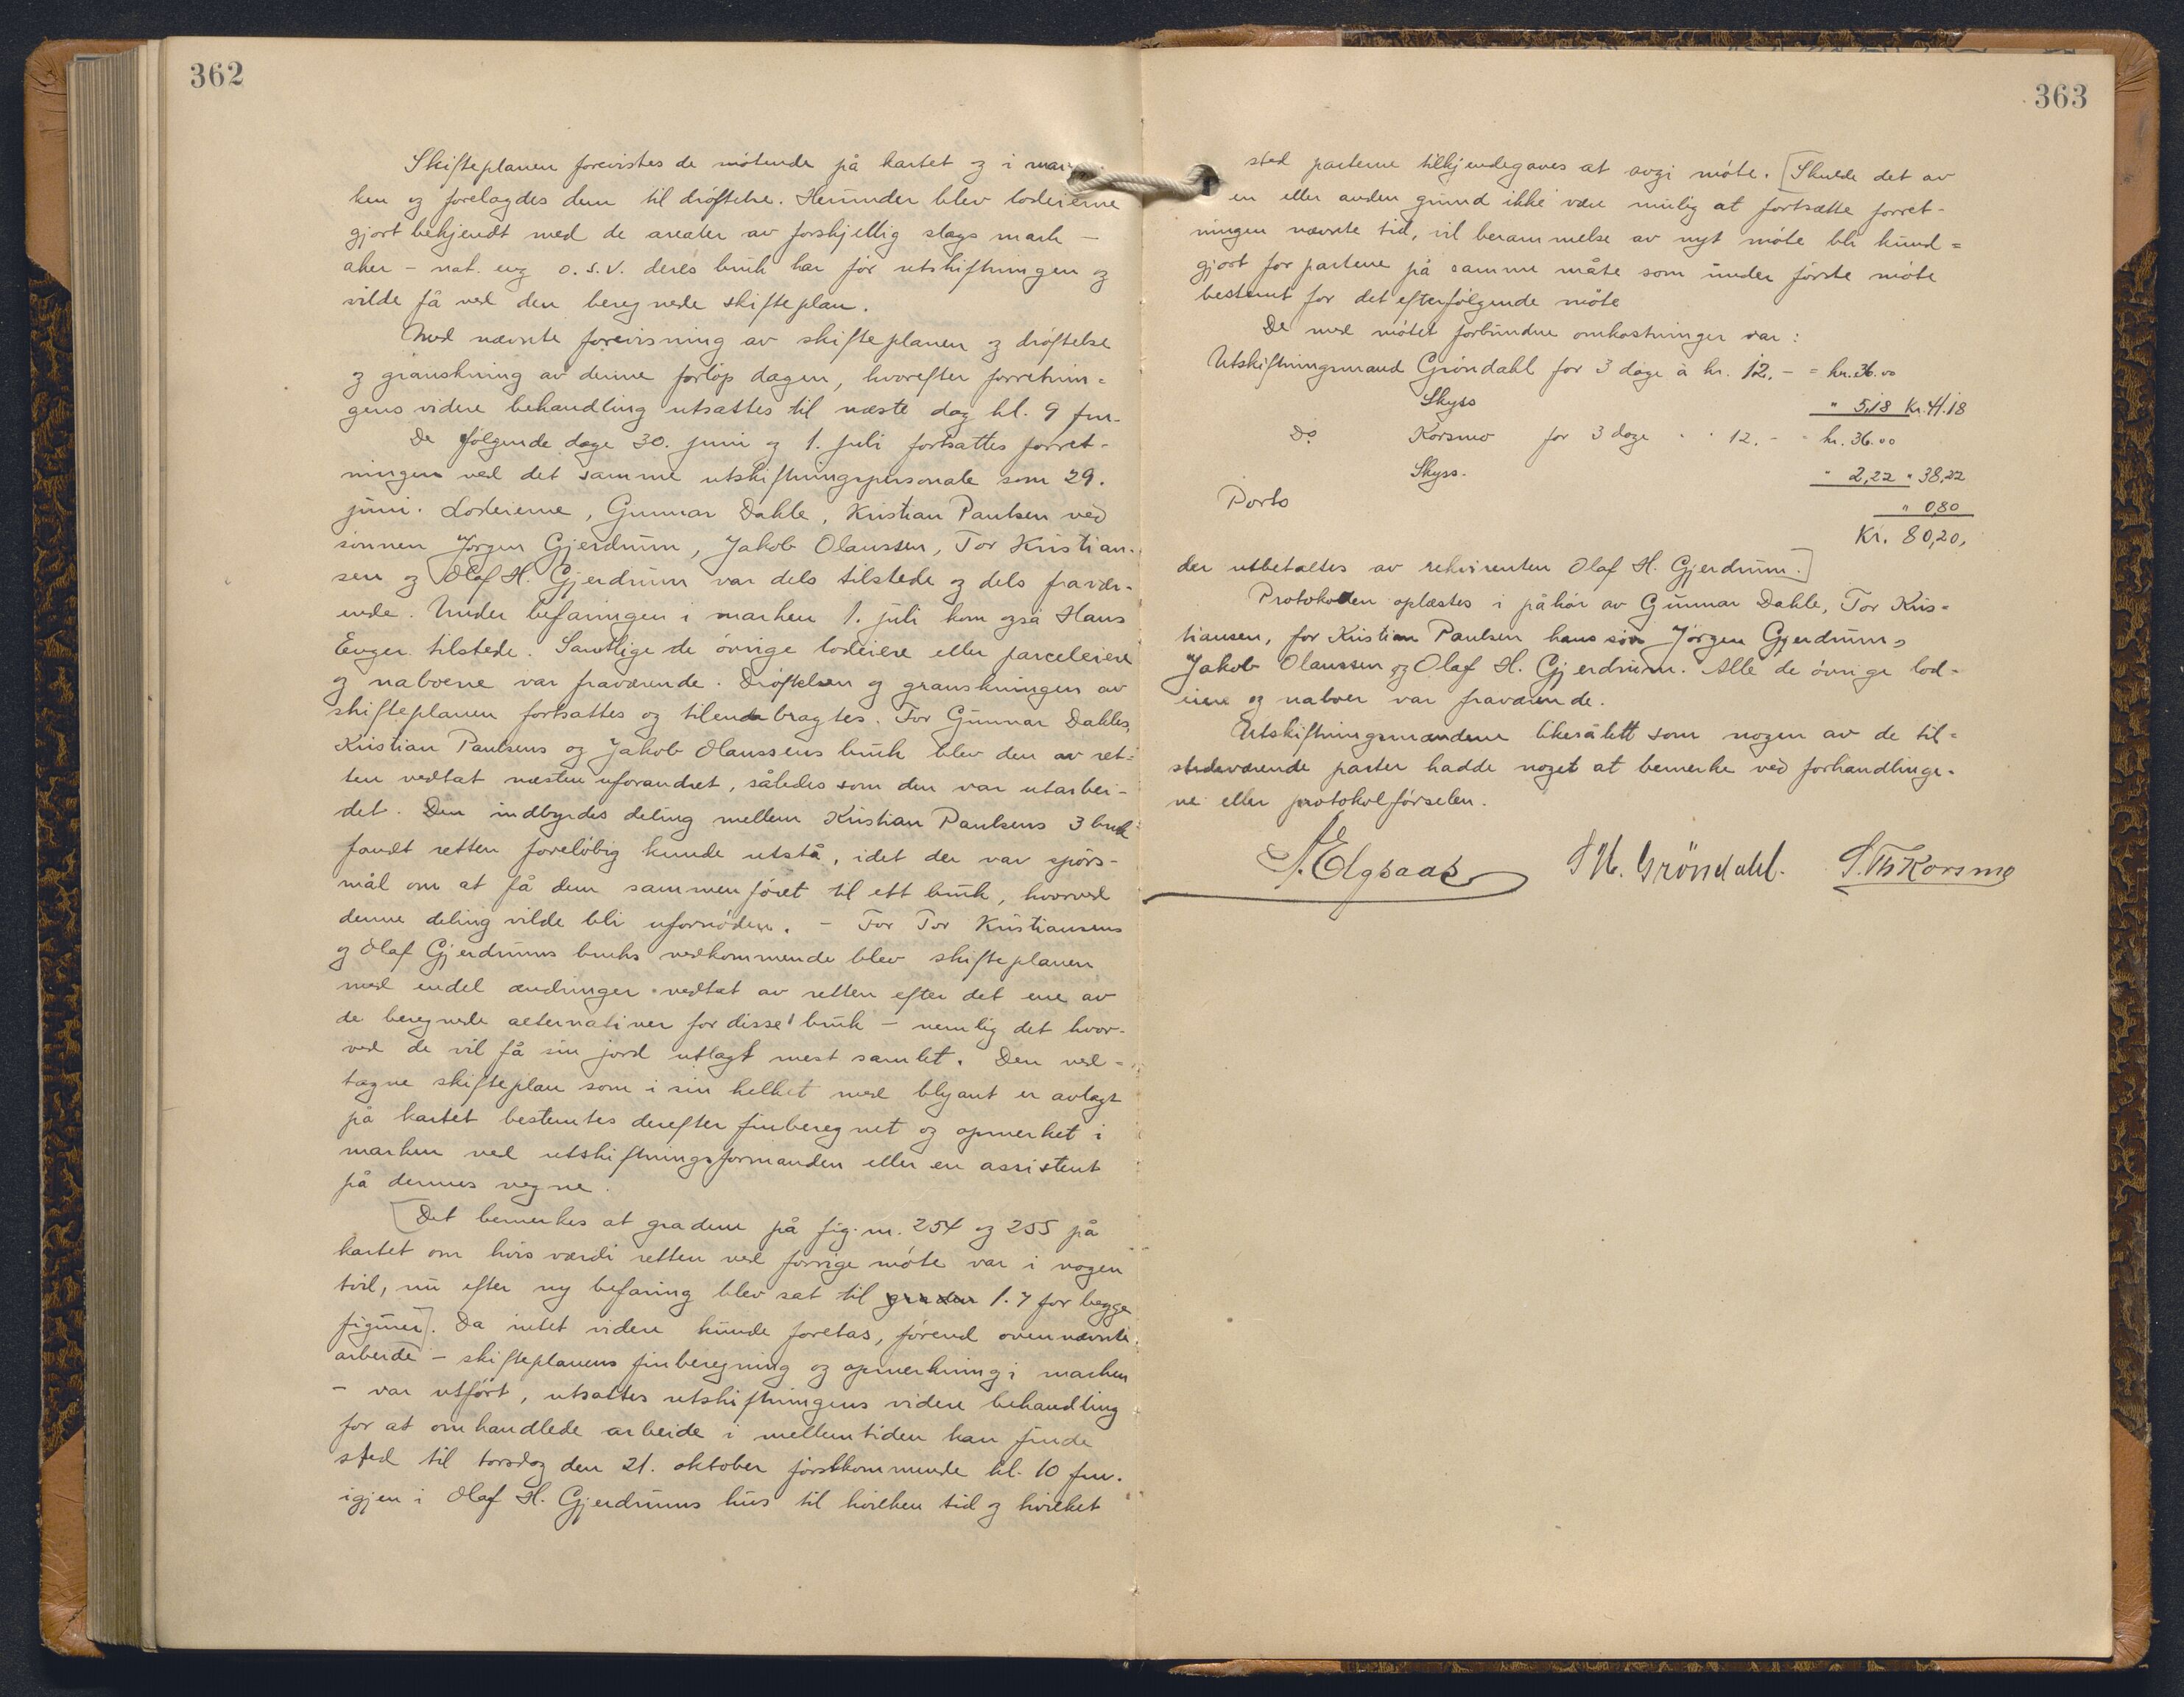 362
Skifteplanen forevistes de møtende på kartet og i mar
ken og forelagdes dem til drøftelse. Herunder blev lodeierne
gjort bekjendt med de arealer av forskjellig slags mark -
aker - nat. eng o.s.v. deres bruk har før utskiftningen og
vilde få ved den beregnede skifteplan.
Med nævnte forevisning av skifteplanen og drøftelse
og granskning av denne forløp dagen, hvorefter forretnin=
gens videre behandling utsattes til næste dag kl. 9 fm.
De følgende dage 30. juni og 1. juli fortsattes forret-
ningen ved det samme utskiftningspersonale som 29.
juni. Lodeierne, Gunnar Dahle, Kristian Paulsen ved
sønnen Jørgen Gjerdrum, Jakob Olaussen, Tor Kristian-
sen og Olaf H. Gjerdrum var dels tilstede og dels fravær-
ende. Under befaringen i marken 1. juli kom også Hans
Enger tilstede. Samtlige de øvrige lodeiere eller parceleiere
og naboene var fraværende. Drøftelsen og granskningen av
skifteplanen fortsattes og tilendebragtes. For Gunnar Dahles,
Kristian Paulsens og Jakob Olaussens bruk blev den av ret-
ten vedtat næsten uforandret, således som den var utarbei-
det. Den indbyrdes deling mellem Kristian Paulsens 3 bruk
fandt retten foreløbig kunde utstå, idet der var spørs-
mål om at få dem sammenføiet til ett bruk, hvorved
denne deling vilde bli ufornøden. - For Tor Kristiansens
og Olaf Gjerdrums bruks vedkommende blev skifteplanen
med endel ændringer vedtat av retten efter det ene av
de beregnede alternativer for disse bruk - nemlig det hvor-
ved de vil få sin jord utlagt mest samlet. Den ved=
tagne skifteplan som i sin helhet med blyant er avlagt
på kartet bestemtes derefter finberegnet og opmerket i
marken ved utskiftningsformanden eller en assistent
på dennes vegne.
[Det bemerkes at graden på fig. nr. 254 og 255 på
kartet om hvis værdi retten ved forrige møte var i nogen
tvil, nu efter ny befaring blev sat til graden 1.7 for begge
figurer]. Da intet videre kunde foretas, førend ovennævnte
arbeide - skifteplanens finberegning og opmerkning i marken
- var utført, utsattes utskiftningens videre behandling
for at omhandlede arbeide i mellemtiden kan finde
sted til torsdag den 21. oktober førstkommende kl. 10 fm.
igjen i Olaf H. Gjerdrums hus til hvilken tid og hvilket
363
sted parterne tilkjendegaves at avgi møte. [Skulde det av
en eller anden grund ikke være mulig at fortsætte forret-
ningen nævnte tid, vil berammelse av nyt møte bli kund=
gjort for partene på samme måte som under første møte
bestemt for det efterfølgende møte
De med møtet forbundne omkostninger var:
Utskiftningsmand Grøndahl for 3 dage à kr. 12.- = kr. 36.00
Skyss " 5,18 Kr. 41.18
Do Korsmo for 3 dage " " 12.- - kr. 36.00
Skyss. " 2,22 " 38,22
Porto " 0,80
Kr. 80,20,
der utbetaltes av rekvirenten Olaf H. Gjerdrum.]
Protokollen oplæstes i påhør av Gunnar Dahle, Tor Kris-
tiansen, for Kristian Paulsen hans søn Jørgen Gjerdrum,
Jakob Olaussen og Olaf H. Gjerdrum. Alle de øvrige lod-
eiere og naboer var fraværende.
Utskiftningsmændene likesålitt som nogen av de til=
stedeværende parter hadde noget at bemerke ved forhandlinge-
ne eller protokolførselen.
Elgsaas H. Grøndahl. S. Th Korsmo